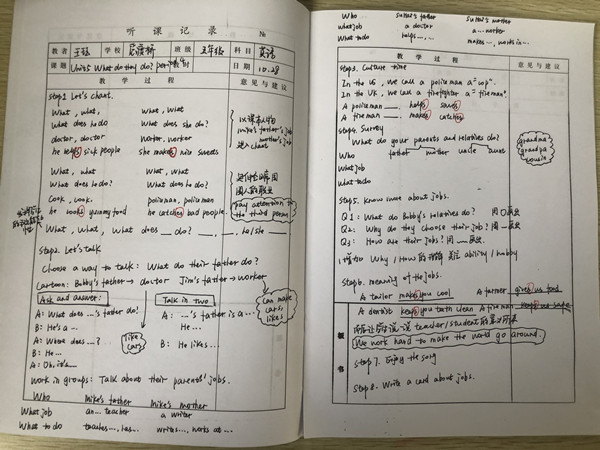 听课记录 №
教者 学校 班级 五年级 科目 英语
课题 Unit5 What do they do? period 日期 10.28
教学过程 意见与建议
Step1 Let's chant.
What, what, What, what
What does he do What does she do?
doctor, doctor Worker, worker
he helps sick people she makes nice sweets
What, what What, what.
What does he do? What does he do?
Cook, Cook. policeman, policeman
he cooks yummy food he catches bad people.
pay attention to
the third person
What, What, What, What does __ do? __, __, he/she __
Step2. Let's talk
Choose a way to talk: What do their father do?
Cartoon: Bobby's father → doctor Jim's father → worker
Ask and answer: Talk in two
can make
cars,
likes
A: What does ...'s father do? A: ...'s father is a ...
B: He's a ... He ...
A: Where does ...? B: He likes...
like
cars
B: He ...
A: Oh, it's...
Work in groups: Talk about their parents' jobs.
Who Mike's father Mike's mother
What job an... teacher a writer
What to do teaches..., has... writes..., works at ...
Who Su Hai's father Su Hai's mother
What job a doctor a... worker
What to do helps..., ... makes..., works in...
教学过程 意见与建议
Step3. Culture time
In the US, we call a policeman a "cop".
In the UK, we call a firefighter a "fireman".
A policeman __ helps saves
A fireman __ makes catches
Step4. Survey
What do your parents and relatives do?
Who father mother uncle aunt
grandma
grandpa
cousin
What job
What to do
Step5. Know more about jobs.
Q1: What do Bobby's relatives do?
Q2: Why do they choose their job?
Q3: How are their jobs?
Why / How ability / hobby
Step6. meaning of the jobs.
A tailor makes you cool A farmer gives us food
A dentist keeps you teeth clean A fireman keeps us safe
板书
teacher/student
We work hard to make the world go around.
Step7. Enjoy the song
Step8. Write a card about jobs.